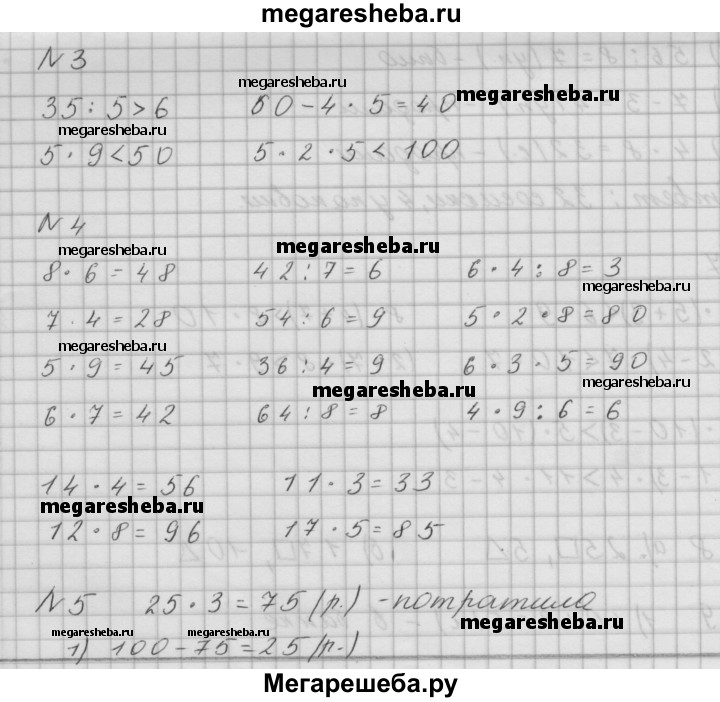 megaresheba.ru
N 3
megaresheba.ru
35 : 5 > 6 60 - 4 · 5 = 40 megaresheba.ru
megaresheba.ru
5 · 9 < 50 5 · 2 · 5 < 100
N 4
megaresheba.ru megaresheba.ru
8 · 6 = 48 42 : 7 = 6 6 · 4 : 8 = 3
megaresheba.ru
7 · 4 = 28 54 : 6 = 9 5 · 2 · 8 = 80
megaresheba.ru
5 · 9 = 45 36 : 4 = 9 6 · 3 · 5 = 90
megaresheba.ru megaresheba.ru
6 · 7 = 42 64 : 8 = 8 4 · 9 : 6 = 6
14 · 4 = 56 11 · 3 = 33
megaresheba.ru
12 · 8 = 96 17 · 5 = 85
N 5 25 · 3 = 75 (р.) - потратила
megaresheba.ru megaresheba.ru megaresheba.ru
1) 100 - 75 = 25 (р.)
Мегарешеба.ру